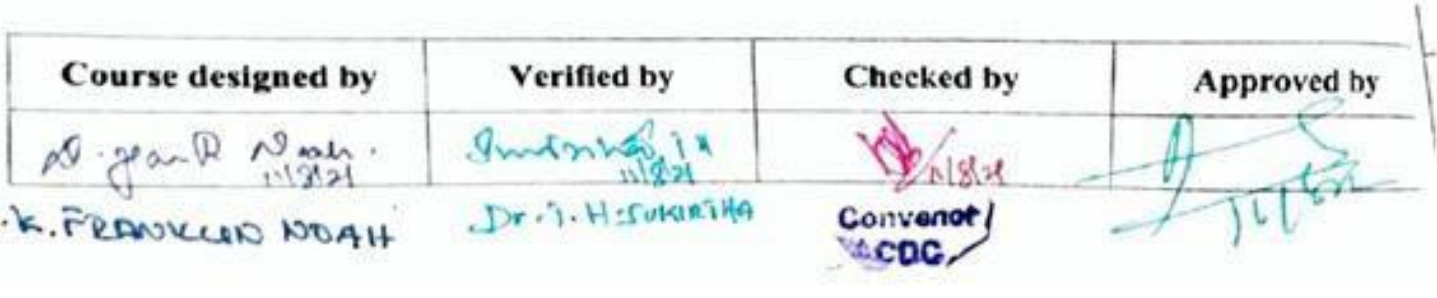 Course designed by Verified by Checked by Approved by
Noah.
11/8/21 11/8/21 11/8/21
.K. FRANKLIN NOAH Dr. T. H. SUKIRTHA Convenor
CDC